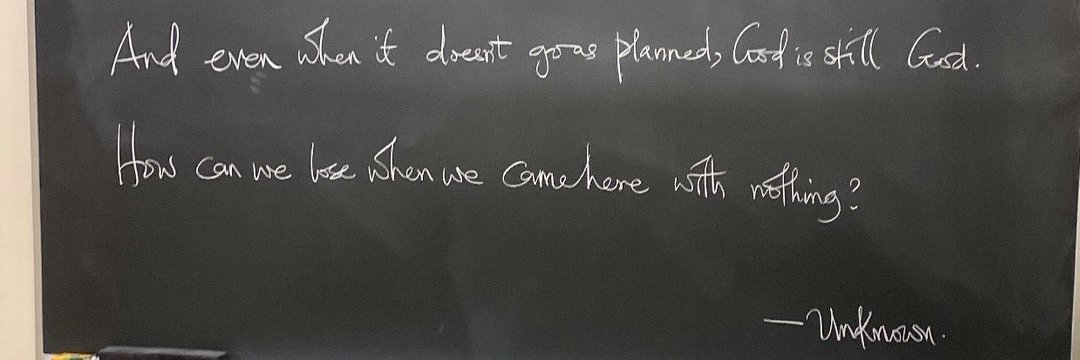 And even when it doesn't go as planned, God is still God.
How can we lose when we came here with nothing?
—Unknown.